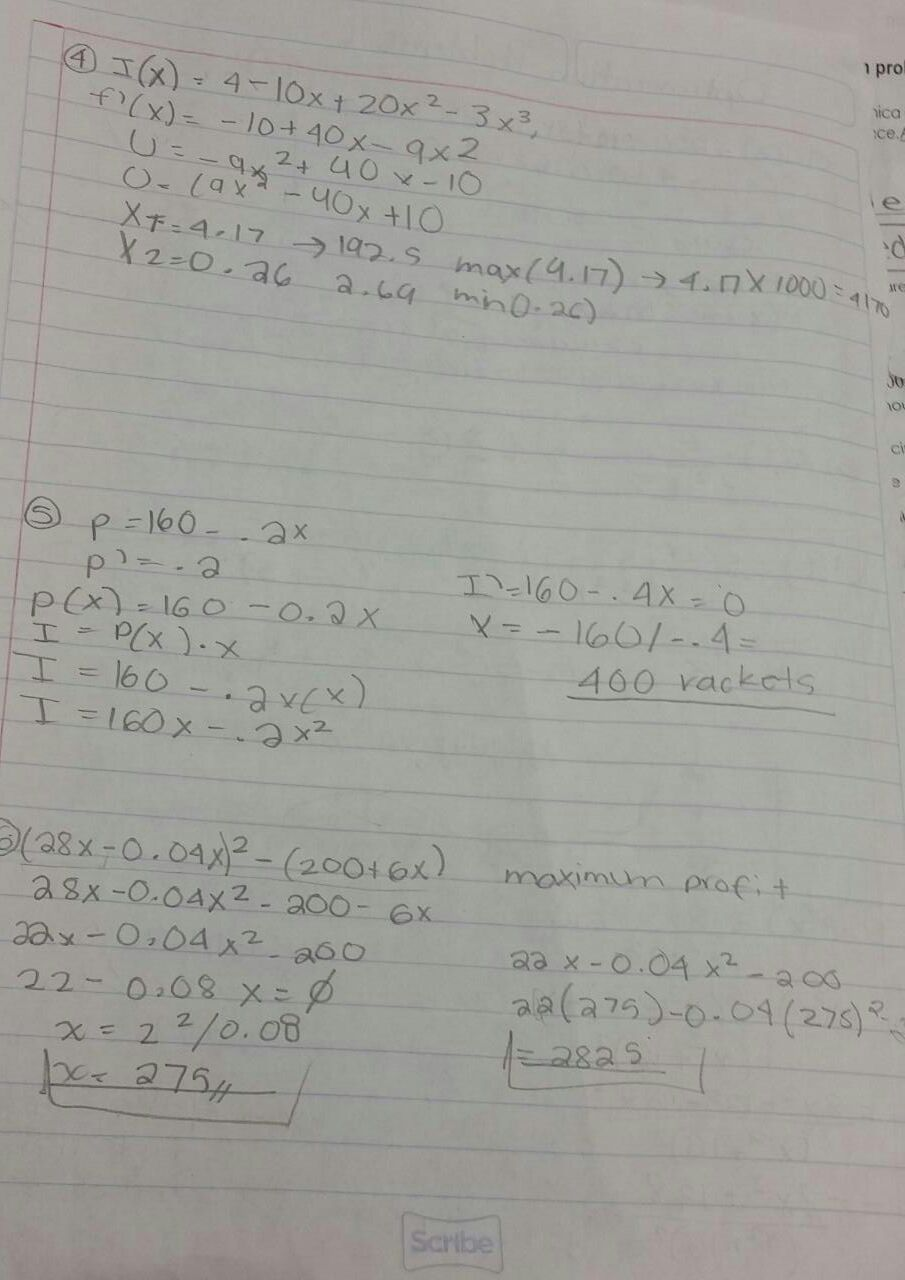 ④ I(x) = 4 - 10x + 20x² - 3x³,
f'(x) = -10 + 40x - 9x2
0 = -9x² + 40x - 10
0 = (9x² - 40x + 10
x1 = 4.17 → 192.5 max(4.17) → 4.17 X 1000 = 4170
X2 = 0.26 2.69 min0.26)
⑤ P = 160 - .2x
p' = -.2
P(x) = 160 - 0.2x
I = P(x).x
I = 160 - .2x(x)
I = 160x - .2x²
I' = 160 - .4x = 0
X = -160/-.4 =
400 rackets
(28x - 0.04x)² - (200+6x)
28x - 0.04x² - 200 - 6x
22x - 0.04x² - 200
22 - 0.08x = 0
x = 22/0.08
x = 275//
maximum profit
22x - 0.04x² - 200
22(275) - 0.04(275)²
= 2825
Scribe